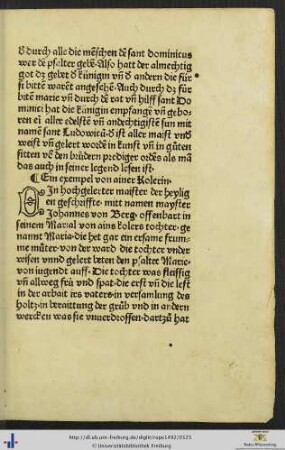 d̉ durch alle die mēschen dē sant dominicus
wer dē psalter gebē. Also hatt der almechtig
got dz gebet d̉ künigin vn̄ d̉ andern die für
si bitte warēt angesehē. Auch durch dz für
bitēt marie vn̄ durch dē rat vn̄ hilff sant Do
minici hat die künigin empfangē vn̄ gebo
ren eī aller edelstē vn̄ andechtigistē sun mit
namē sant Ludowicū d̉ ist aller maist vnd
weist vn̄ gelert wordē in kunst vn̄ in gůten
sitten vō den brüdern prediger ordēs als mā
das auch in seiner legend lesen ist.
¶ Ein exempel von ainer Kolerin.
EIn hochgelerter maister der heylig
en geschriffte. mit namen mayster
Johannes von Berg. offenbart in
seinem Marial von ains kolers tochter. ge
nannt Maria. die het gar ein ersame frum
me můter. von der ward die tochter vnder
wisen vnnd gelert beten den psalter Marie.
von iugendt auff. Die tochter was fleissig
vn̄ allweg frü vnd spat. die erst vn̄ die lest
in der arbait irs vaters. in versamlung des
holtz. in beraittung der grůb vnd in andern
wercken was sie vnuerdrossen. dartzů hat
http://dl.ub.uni-freiburg.de/diglit/rupe1492/0125
© Universitätsbibliothek Freiburg
Baden-Württemberg